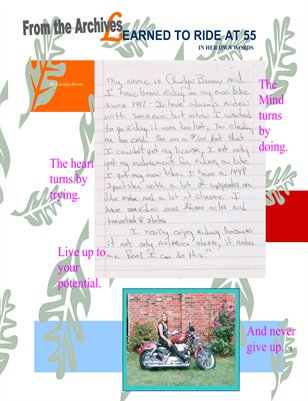 From the Archives
LEARNED TO RIDE AT 55
IN HER OWN WORDS
By Carolyn Brown
My name is Carolyn Brown and
I have been riding on my own bike
since 1997. I have always ridden
with someone but when I wanted
to go riding it was too hot, too
or too cold.
I couldn't get my license, I not only
got my endorsement for riding a bike
I got my own bike. I have a 1998
Sportster with a lot of upgrades on
the motor and a lot of chrome. I
have ridden over miles and
traveled states
I really enjoy riding because
it not only relieves stress, it makes
me feel I can do this.
The
Mind
turns
by
doing.
The heart
turns by
trying.
Live up to
your
potential.
And never
give up.